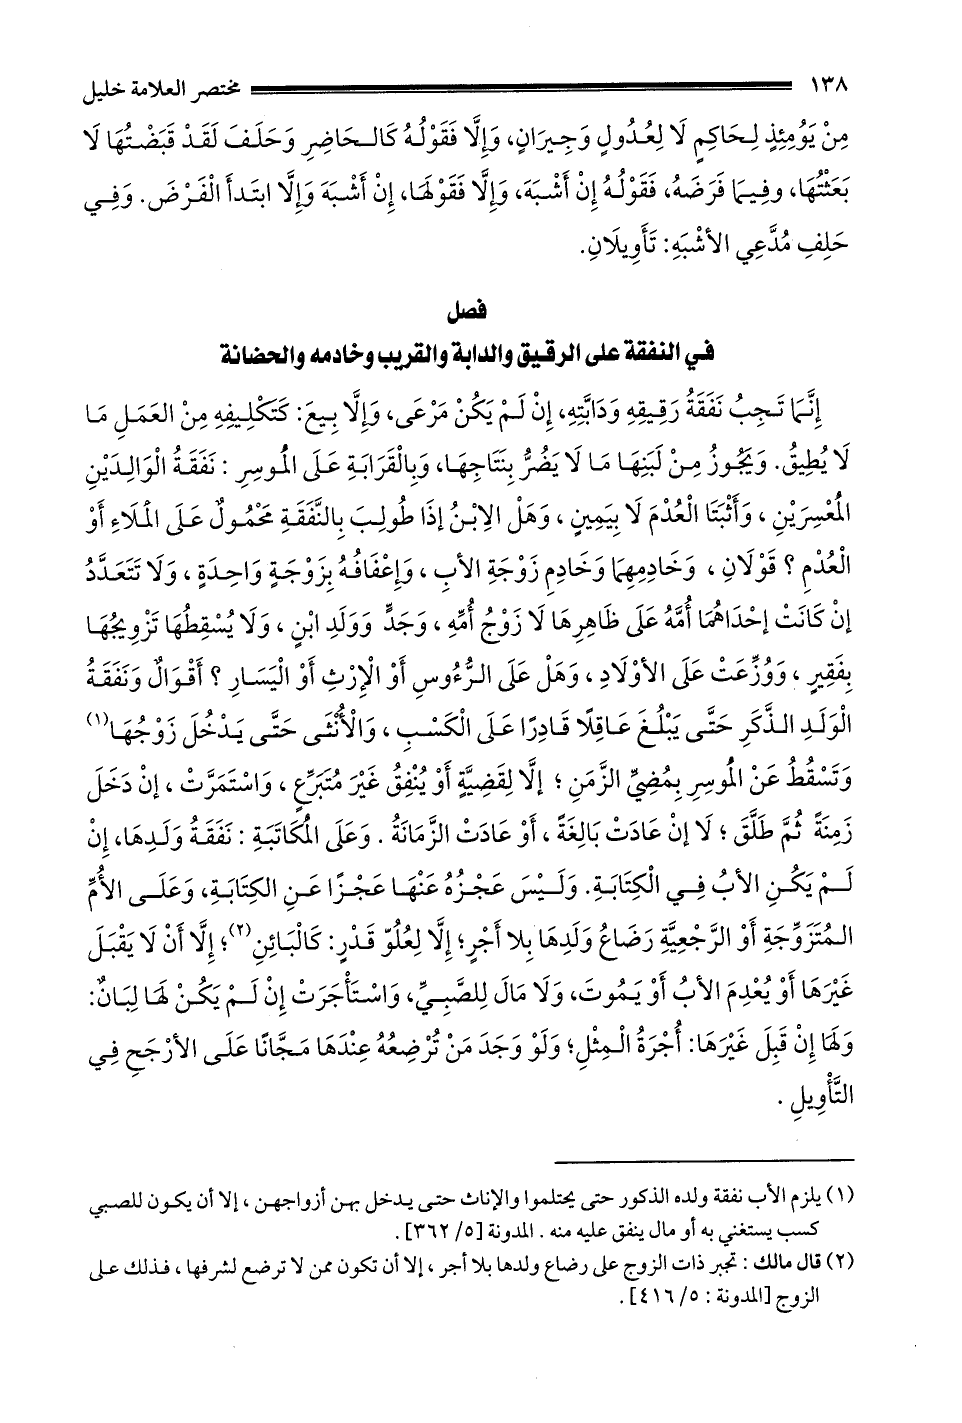 ١٣٨ مختصر العلامة خليل
مِنْ يَوْمِئِذٍ لِحَاكِمٍ لَا لِعُدُولٍ وَجِيرَانٍ، وَإِلَّا فَقَوْلُهُ كَالحَاضِرِ وَحَلَفَ لَقَدْ قَبَضْتُهَا لَا
بَعَثْتُهَا، وفِيمَا فَرَضَهُ، فَقَوْلُهُ إِنْ أَشْبَهَ، وَإِلَّا فَقَوْلهَا، إِنْ أَشْبَهَ وَإِلَّا ابتَدأَ الْفَرْضَ. وَفِي
حَلِفِ مُدَّعِي الأَشْبَهِ: تَأوِيلَانِ.
فصل
في النفقة على الرقيق والدابة والقريب وخادمه والحضانة
إِنَّمَا تَجِبُ نَفَقَةُ رَقِيقِهِ وَدَابَّتِهِ، إِنْ لَمْ يَكُنْ مَرْعَى، وَإِلَّا بِيعَ: كَتَكْلِيفِهِ مِنَ العَمَلِ مَا
لَا يُطِيقُ. وَيَجُوزُ مِنْ لَبَنِهَا مَا لَا يَضُرُّ بِنَتَاجِهَا، وَبِالْقَرَابَةِ عَلَى المُوسِرِ : نَفَقَةُ الْوَالِدَيْنِ
المُعْسِرَيْنِ ، وَأَثْبَتَا الْعُدْمَ لَا بِيَمِينٍ ، وَهَلْ الِابْنُ إِذَا طُولِبَ بِالنَّفَقَةِ مَحْمُولٌ عَلَى المَلَاءِ أَوْ
الْعُدْمِ ؟ قَوْلَانِ ، وَخَادِمِهِمَا وَخَادِمِ زَوْجَةِ الأَبِ ، وَإِعْفَافُهُ بِزَوْجَةٍ وَاحِدَةٍ ، وَلَا تَتَعَدَّدُ
إِنْ كَانَتْ إِحْدَاهُمَا أُمَّهُ عَلَى ظَاهِرِهَا لَا زَوْجُ أُمِّهِ ، وَجَدٍّ وَوَلَدِ ابْنٍ ، وَلَا يُسْقِطُهَا تَزْوِيجُهَا
بِفَقِيرٍ ، وَوُزِّعَتْ عَلَى الأَوْلَادِ ، وَهَلْ عَلَى الرُّءُوسِ أَوْ الْإِرْثِ أَوْ الْيَسَارِ ؟ أَقْوَالٌ وَنَفَقَةُ
الْوَلَدِ الذَّكَرِ حَتَّى يَبْلُغَ عَاقِلًا قَادِرًا عَلَى الْكَسْبِ ، وَالأُنْثَى حَتَّى يَدْخُلَ زَوْجُهَا(١)
وَتَسْقُطُ عَنْ المُوسِرِ بِمُضِيِّ الزَّمَنِ ؛ إلَّا لِقَضِيَّةٍ أَوْ يُنْفِقُ غَيْرَ مُتَبَرِّعٍ ، وَاسْتَمَرَّتْ ، إنْ دَخَلَ
زَمِنَةً ثُمَّ طَلَّقَ ؛ لَا إنْ عَادَتْ بَالِغَةً ، أَوْ عَادَتْ الزَّمَانَةُ . وَعَلَى المُكَاتَبَةِ : نَفَقَةُ وَلَدِهَا، إنْ
لَمْ يَكُنِ الأَبُ فِي الْكِتَابَةِ. وَلَيْسَ عَجْزُهُ عَنْهَا عَجْزًا عَنِ الكِتَابَةِ، وَعَلَى الأُمِّ
المُتَزَوِّجَةِ أَوْ الرَّجْعِيَّةِ رَضَاعُ وَلَدِهَا بِلا أَجْرٍ؛ إِلَّا لِعُلُوِّ قَدْرٍ: كَالْبَائِنِ(٢)؛ إِلَّا أَنْ لَا يَقْبَلَ
غَيْرَهَا أَوْ يُعْدِمَ الأَبُ أَوْ يَمُوتَ، وَلَا مَالَ لِلصَّبِيِّ، وَاسْتَأْجَرَتْ إِنْ لَمْ يَكُنْ لَهَا لِبَانٌ:
وَلَهَا إِنْ قَبِلَ غَيْرَهَا: أُجْرَةُ الْمِثْلِ؛ وَلَوْ وَجَدَ مَنْ تُرْضِعُهُ عِنْدَهَا مَجَّانًا عَلَى الأَرْجَحِ فِي
التَّأْوِيلِ .
(١) يلزم الأب نفقة ولده الذكور حتى يحتلموا والإناث حتى يدخل بهن أزواجهن ، إلا أن يكون للصبي
كسب يستغني به أو مال ينفق عليه منه . المدونة [٥/ ٣٦٢].
(٢) قال مالك : تجبر ذات الزوج على رضاع ولدها بلا أجر ، إلا أن تكون ممن لا ترضع لشرفها ، فذلك على
الزوج [المدونة : ٥/ ٤١٦] .